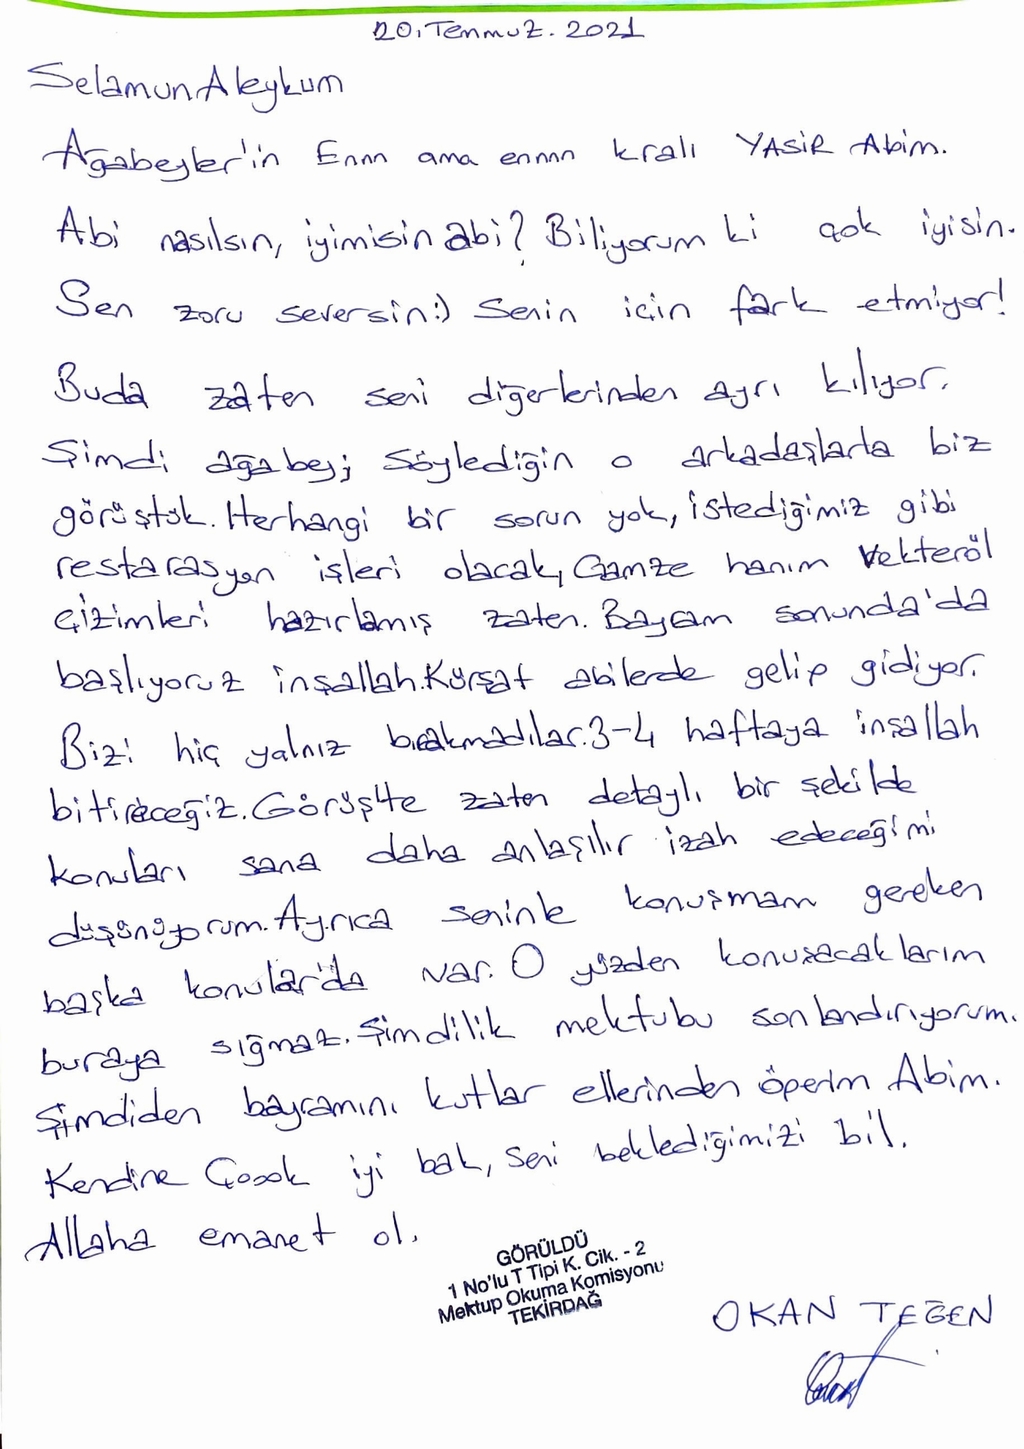 20. Temmuz. 2021
Selamun Aleykum
Ağabeyler'in Ennn ama ennnn kralı YASİR Abim.
Abi nasılsın, iyimisin abi? Biliyorum ki çok iyisin.
Sen zoru seversin:) Senin için fark etmiyor!
Buda zaten seni diğerlerinden ayrı kılıyor.
Şimdi ağabey; Söylediğin o arkadaşlarla biz
görüştük. Herhangi bir sorun yok, istediğimiz gibi
restarasyon işleri olacak, Gamze hanım Vekteröl
Çizimleri hazırlamış zaten. Bayram sonunda'da
başlıyoruz inşallah. Kürşat abilerde gelip gidiyor.
Bizi hiç yalnız bırakmadılar. 3-4 haftaya inşallah
bitireceğiz. Görüşte zaten detaylı bir şekilde
konuları sana daha anlaşılır izah edeceğimi
düşünüyorum. Ayrıca seninle konuşmam gereken
başka konular'da var. O yüzden konuşacaklarım
buraya sığmaz. Şimdilik mektubu sonlandırıyorum.
Şimdiden bayramını kutlar ellerinden öperim Abim.
Kendine Çoook iyi bak, seni beklediğimizi bil.
Allaha emanet ol.
GÖRÜLDÜ
1 No'lu T Tipi K. Cik. - 2
Mektup Okuma Komisyonu
TEKİRDAĞ
OKAN TEĞEN